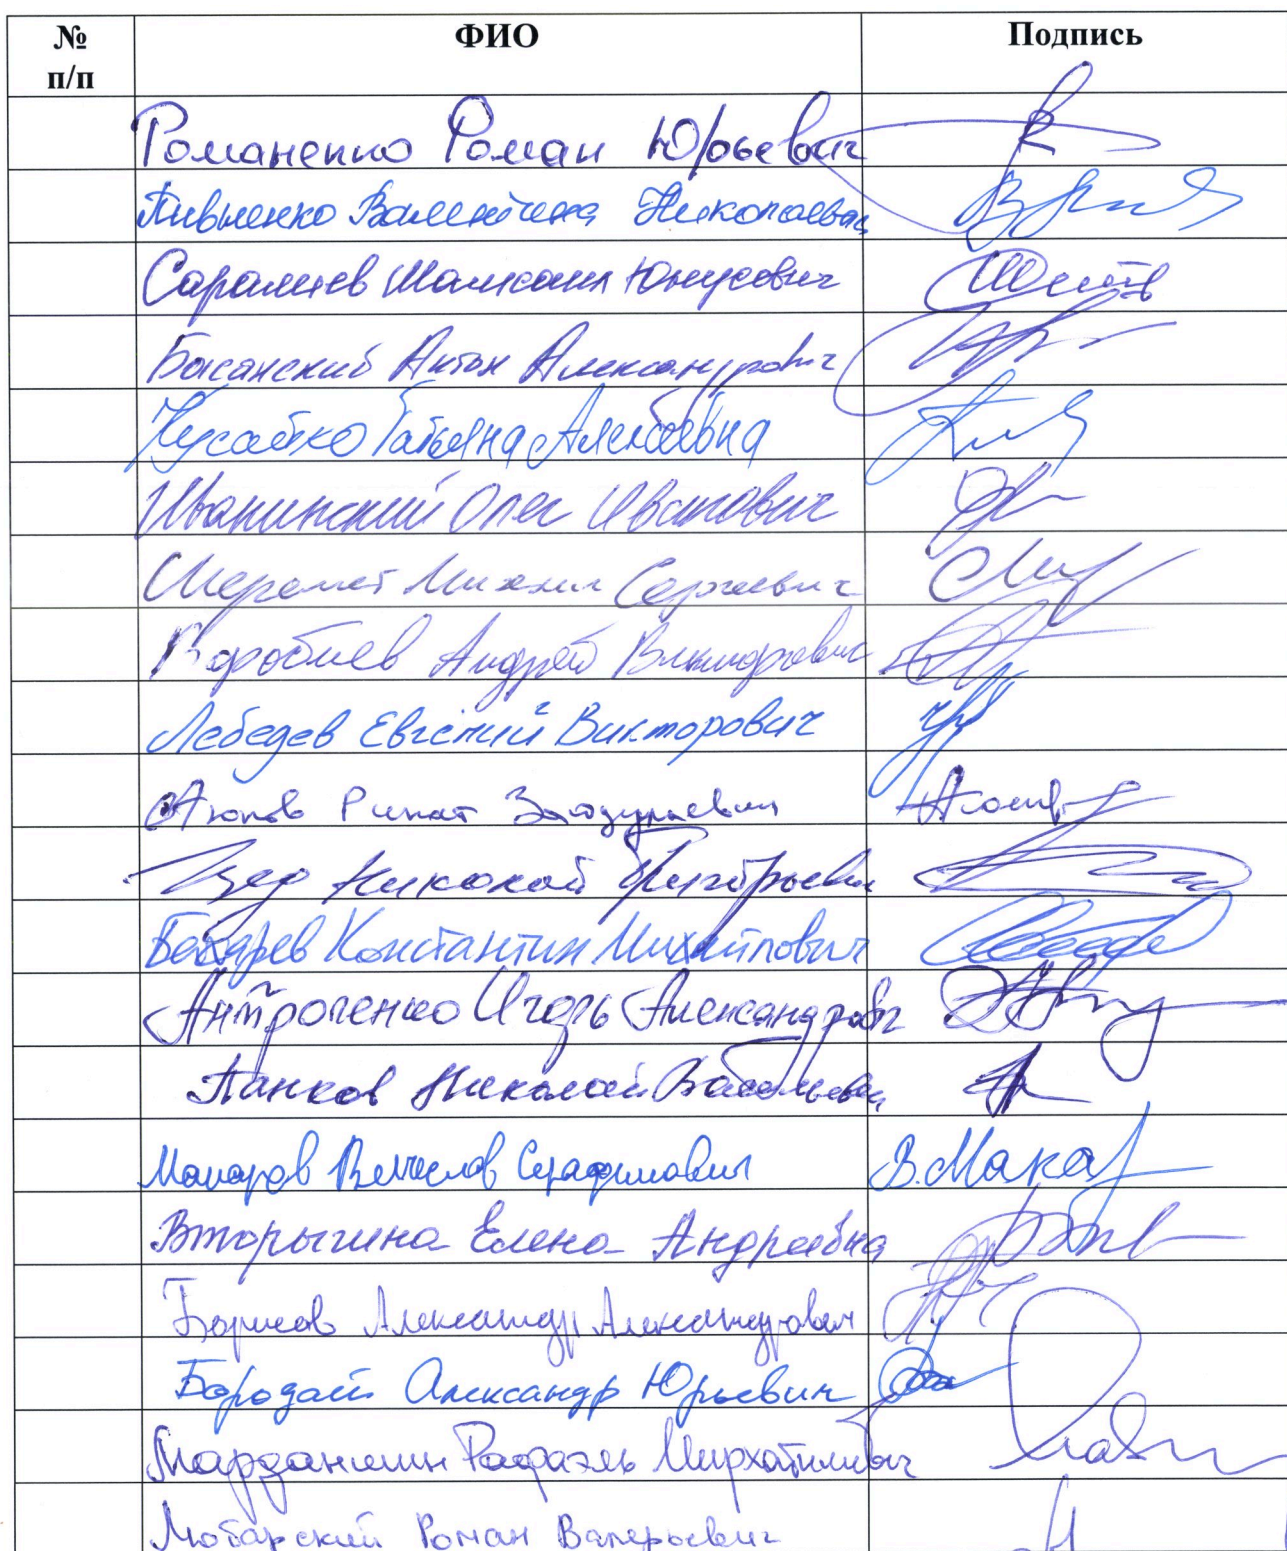 № п/п ФИО Подпись
Романенко Роман Юрьевич
Пивненко Валентина Николаевна
Саралиев Шамсаил Юнусович
Басанский Антон Александрович
Кусайко Татьяна Алексеевна
Иванинский Олег Иванович
Шеремет Михаил Сергеевич
Воробьев Андрей Викторович
Лебедев Евгений Викторович
Аюпов Ринат Загидуллаевич
Николай Григорьевич
Бахарев Константин Михайлович
Антропенко Игорь Александрович
Панков Николай Васильевич
Макаров Вячеслав Серафимович В.Мака
Вторыгина Елена Андреевна
Борисов Александр Александрович
Бородай Александр Юрьевич
Марданшин Рафаэль Мирхатимович
Роман Валерьевич